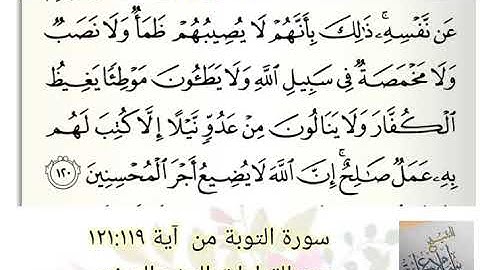 عَن نَّفْسِهِۦ ۚ ذَٰلِكَ بِأَنَّهُمْ لَا يُصِيبُهُمْ ظَمَأٌ وَلَا نَصَبٌ
وَلَا مَخْمَصَةٌ فِى سَبِيلِ ٱللَّهِ وَلَا يَطَـُٔونَ مَوْطِئًا يَغِيظُ
ٱلْكُفَّارَ وَلَا يَنَالُونَ مِنْ عَدُوٍّ نَّيْلًا إِلَّا كُتِبَ لَهُم
بِهِۦ عَمَلٌ صَـٰلِحٌ ۚ إِنَّ ٱللَّهَ لَا يُضِيعُ أَجْرَ ٱلْمُحْسِنِينَ ١٢٠
سورة التوبة من آية ١٢١:١١٩